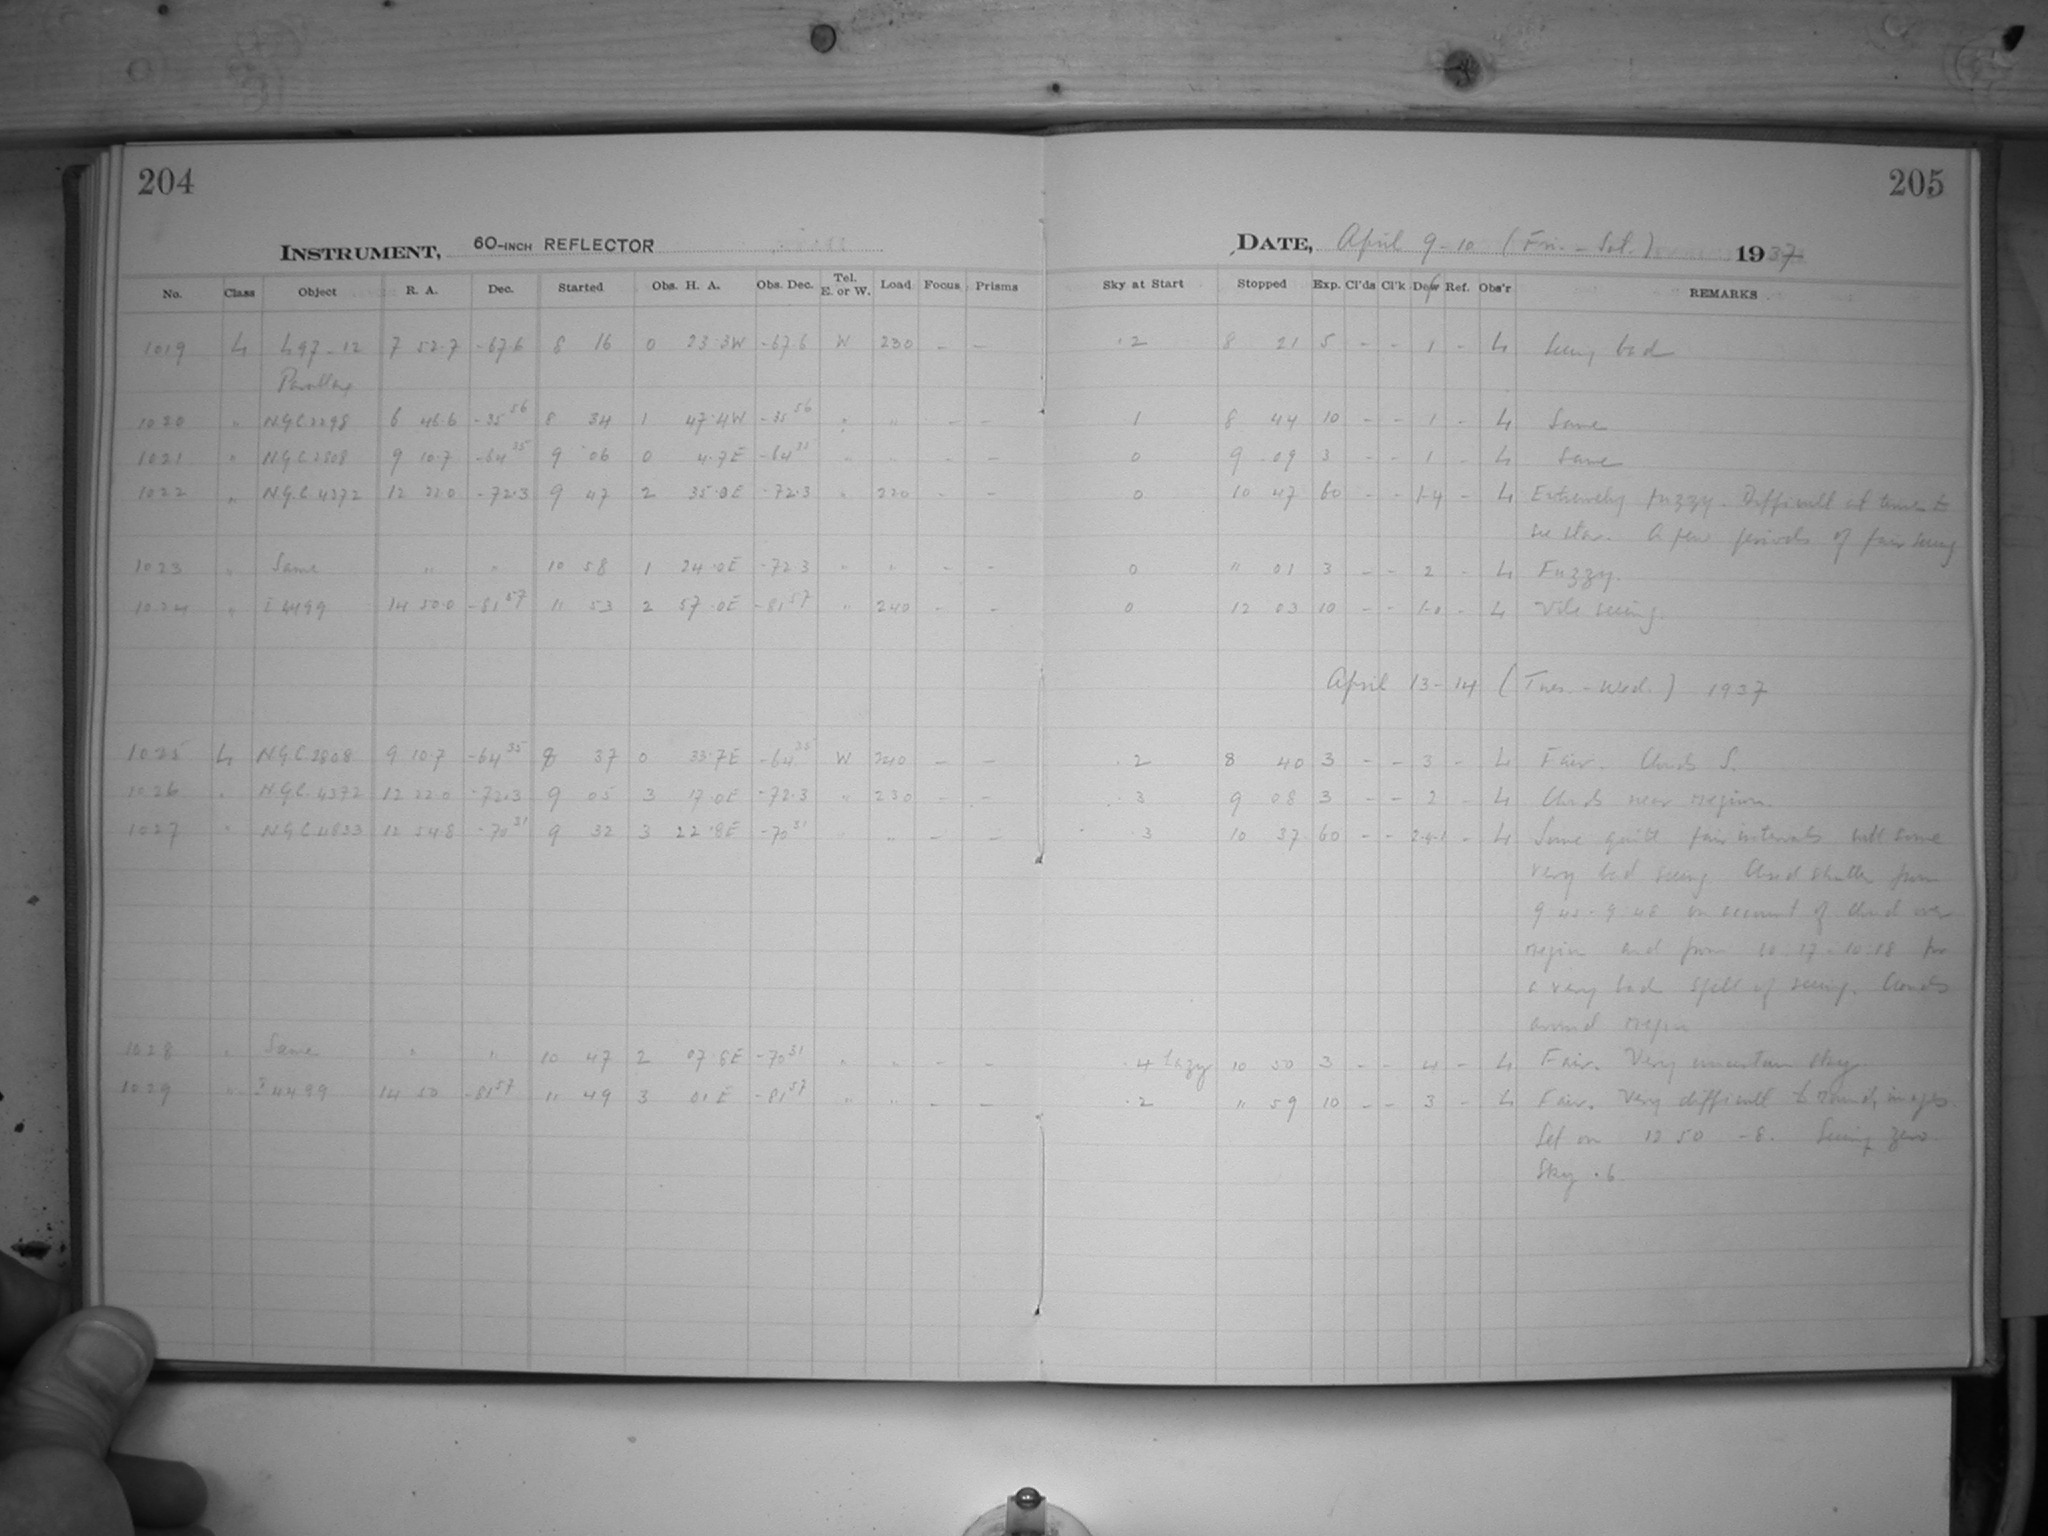 204
205
INSTRUMENT, 60-INCH REFLECTOR
DATE, April 9-10 (Fri. - Sat.) 1937
No. Class Object R. A. Dec. Started Obs. H. A. Obs. Dec. Tel. E. or W. Load Focus Prisms Sky at Start Stopped Exp. Cl'ds Cl'k Dew Ref. Obs'r REMARKS
1019 L L97-12 7 52.7 -67.6 8 16 0 23.3W -67.6 W 230 - - .2 8 21 5 - - 1 - L Seeing bad
Parallax
1020 " NGC 2298 6 46.6 -35 56 8 34 1 47.4W -35 56 " " - - 1 8 44 10 - - 1 - L Same
1021 " NGC 2808 9 10.7 -64 35 9 06 0 4.7E -64 35 " " - - 0 9 09 3 - - 1 - L Same
1022 " NGC 4372 12 22.0 -72.3 9 47 2 35.0E -72.3 " 220 - - 0 10 47 60 - - 1-4 - L Extremely fuzzy. Difficult at times to
see star. A few periods of fair seeing
1023 " Same " " 10 58 1 24.0E -72.3 " " - - 0 " 01 3 - - 2 - L Fuzzy.
1024 " I 4499 14 50.0 -81 57 11 53 2 57.0E -81 57 " 240 - - 0 12 03 10 - - 1-0 - L Vile seeing.
April 13-14 (Tues. - Wed.) 1937
1025 L NGC 2808 9 10.7 -64 35 8 37 0 33.7E -64 35 W 240 - - .2 8 40 3 - - 3 - L Fair. Clouds S.
1026 " NGC 4372 12 22.0 -72.3 9 05 3 17.0E -72.3 " 230 - - .3 9 08 3 - - 2 - L Clouds near region.
1027 " NGC 4833 12 54.8 -70 31 9 32 3 22.8E -70 31 " " - - .3 10 37 60 - - - L Some quite fair intervals but some
very bad seeing. Closed shutter from
9 45 - 9 48 on account of cloud over
region and from 10 17 - 10 18 for
a very bad spell of seeing. Clouds
around region
1028 " Same " " 10 47 2 07.8E -70 31 " " - - .4 hazy 10 50 3 - - 4 - L Fair. Very uncertain sky.
1029 " I 4499 14 50 -81 57 11 49 3 01E -81 57 " " - - .2 " 59 10 - - 3 - L Fair. Very difficult to round images.
Set on 12 50 -8. Seeing zero
Sky .6